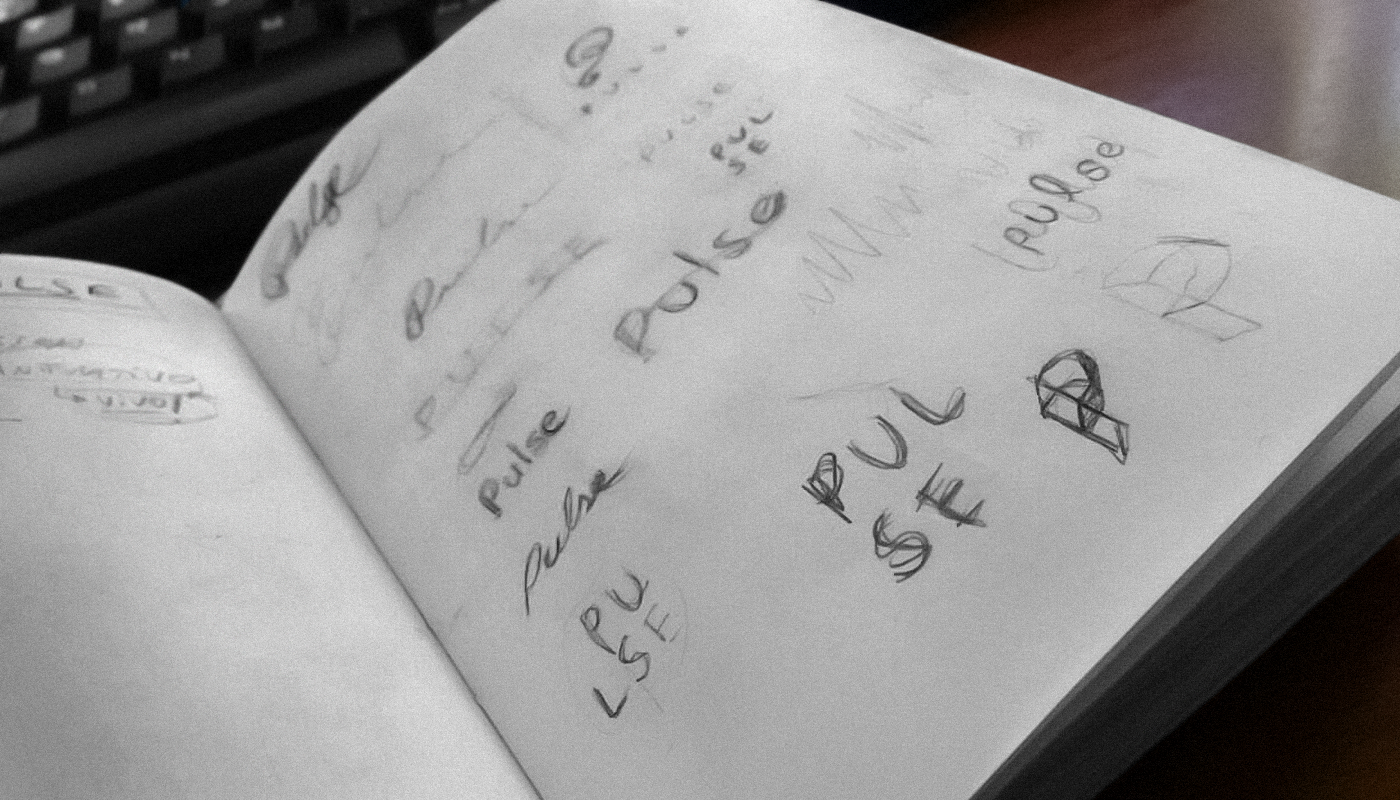 LSE
Pulse
PULSE
PUL
SE
Pulse
pulse
Pulse
PULSE
Pulse
Pulse
PU
LSE
PUL
SE
P